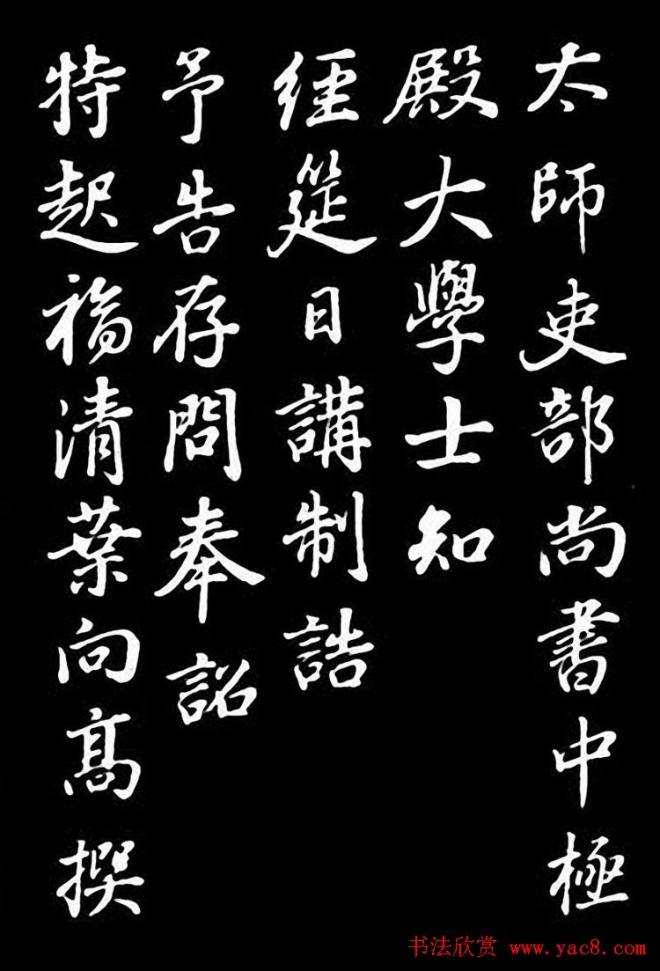 太師吏部尚書中極
殿大學士知
經筵日講制誥
予告存問奉詔
特起福清葉向高撰
书法欣赏 www.yac8.com